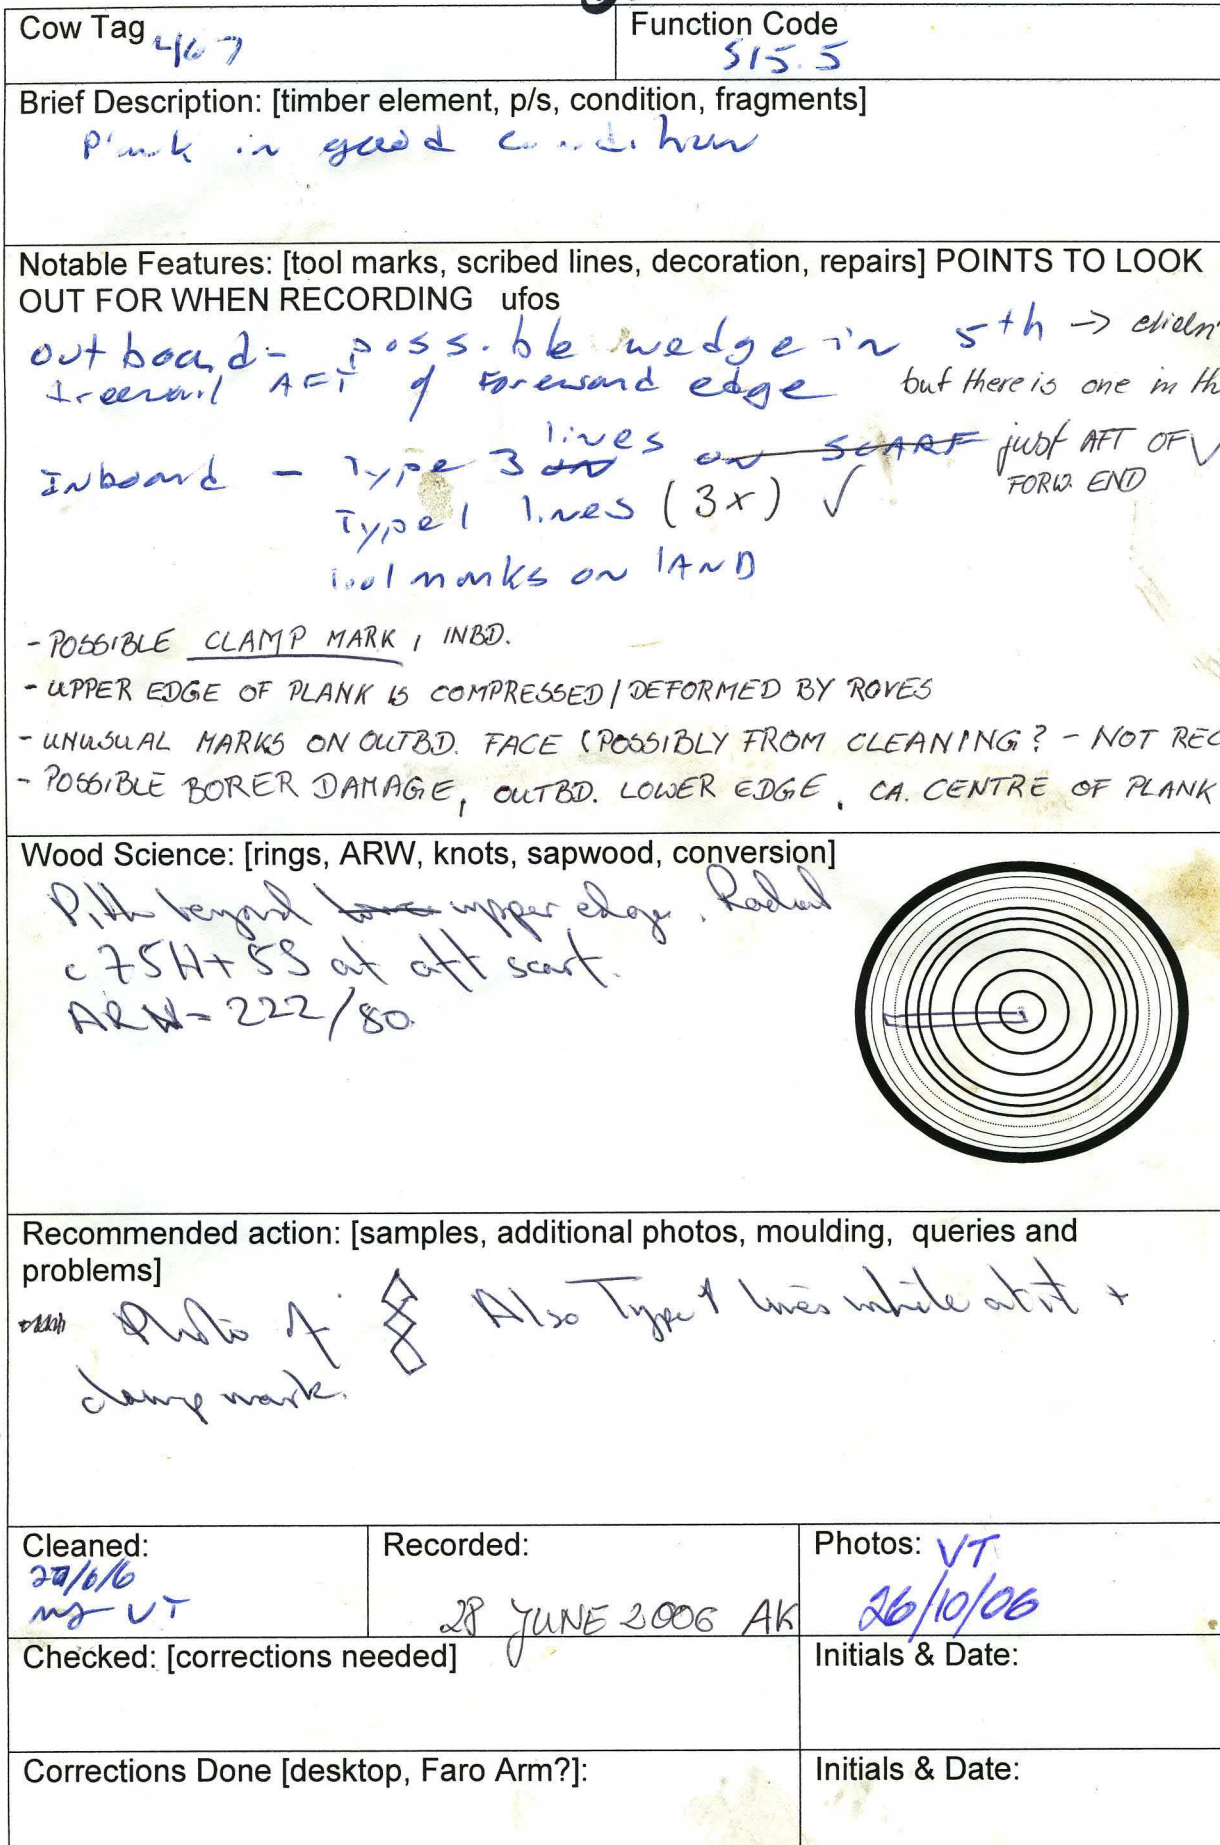 Cow Tag 467
Function Code
S15.5
Brief Description: [timber element, p/s, condition, fragments]
Plank in good condition
Notable Features: [tool marks, scribed lines, decoration, repairs] POINTS TO LOOK
OUT FOR WHEN RECORDING ufos
outboard - possible wedge in 5th →
treenail AFT of Foreward edge but there is one in th
Inboard - Type 3 lines on SCARF just AFT OF
FORW. END
Type 1 lines (3x) ✓
Tool marks on LAND
- POSSIBLE CLAMP MARK, INBD.
- UPPER EDGE OF PLANK IS COMPRESSED/DEFORMED BY ROVES
- UNUSUAL MARKS ON OUTBD. FACE (POSSIBLY FROM CLEANING? - NOT REC
- POSSIBLE BORER DAMAGE, OUTBD. LOWER EDGE, CA. CENTRE OF PLANK
Wood Science: [rings, ARW, knots, sapwood, conversion]
Pith beyond upper edge. Radial
c 75H+5S at aft scarf.
ARW = 222/80.
Recommended action: [samples, additional photos, moulding, queries and
problems]
Photo of Also Type 1 lines while at it +
clamp mark.
Cleaned:
VT
Recorded:
28 JUNE 2006 AK
Photos: VT
26/10/06
Checked: [corrections needed]
Initials & Date:
Corrections Done [desktop, Faro Arm?]:
Initials & Date: